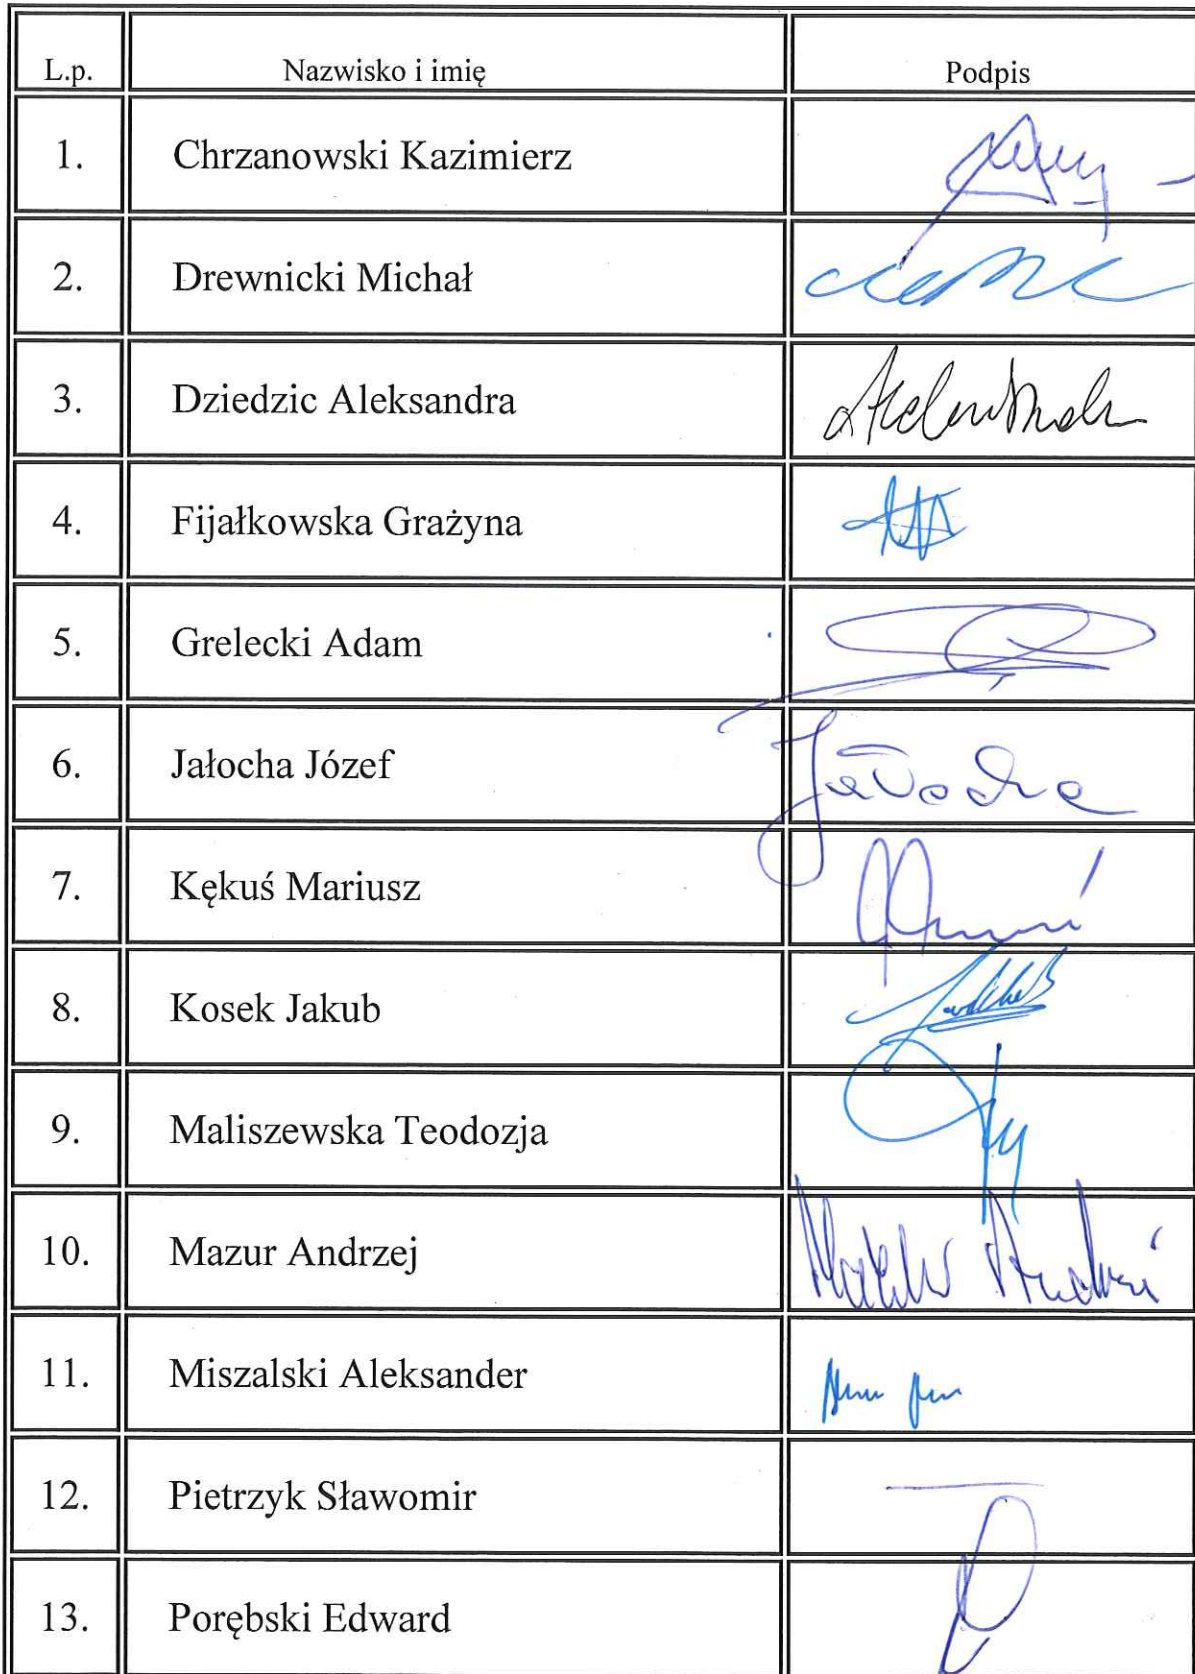 L.p. Nazwisko i imię Podpis
1. Chrzanowski Kazimierz
2. Drewnicki Michał
3. Dziedzic Aleksandra
4. Fijałkowska Grażyna
5. Grelecki Adam
6. Jałocha Józef Jałocha
7. Kękuś Mariusz
8. Kosek Jakub
9. Maliszewska Teodozja
10. Mazur Andrzej
11. Miszalski Aleksander
12. Pietrzyk Sławomir
13. Porębski Edward